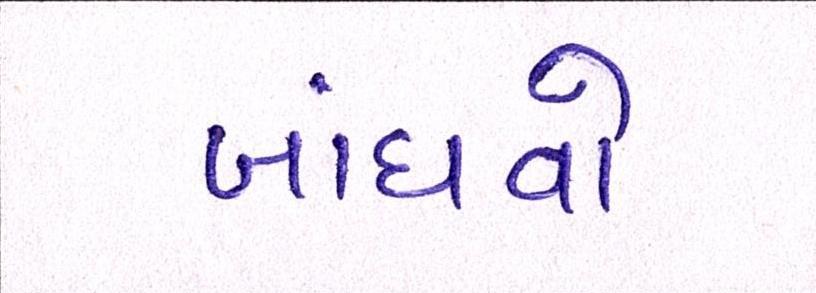 બાંધવો